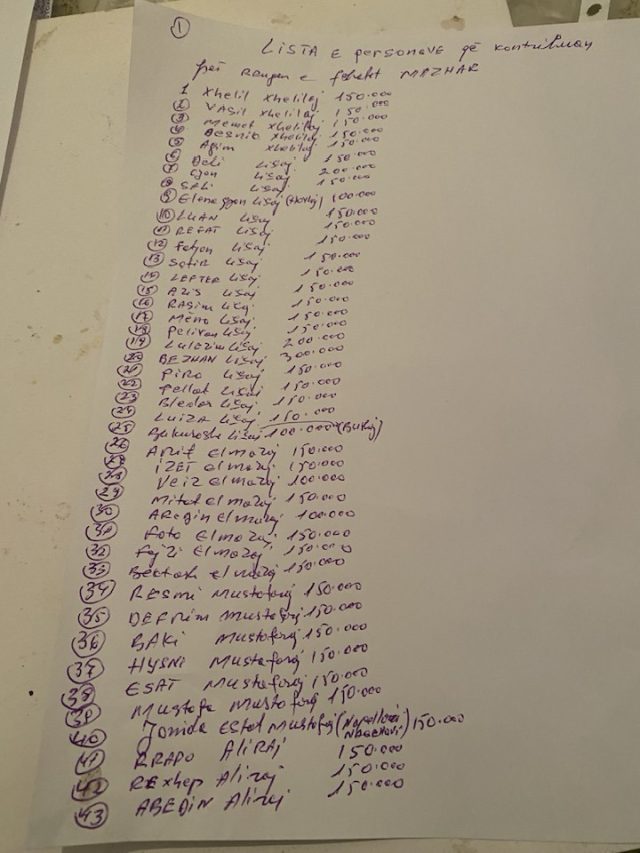 1
LISTA E personave që kontribuan
për rrugen e fshatit MAZHAR
1 Xhelil Xhelilaj 150.000
2 VASIL Xhelilaj 150.000
3 Memet Xhelilaj 150.000
4 Besnik Xhelilaj 150.000
5 Agim Xhelilaj 150.000
6 Beki Lisaj 150.000
7 Gjon Lisaj 200.000
8 SALI Lisaj 150.000
9 Elena Lisaj 100.000
10 LUAN Lisaj 150.000
11 REFAT Lisaj 150.000
12 Fatjon Lisaj 150.000
13 Sotir Lisaj 150.000
14 LEFTER Lisaj 150.000
15 AZIS Lisaj 150.000
16 RAGIM Lisaj 150.000
17 Meno Lisaj 150.000
18 Pelivan Lisaj 150.000
19 Lulezim Lisaj 200.000
20 BEZHAN Lisaj 300.000
21 Piro Lisaj 150.000
22 Pellat Lisaj 150.000
23 Bledar Lisaj 150.000
24 LUIZA Lisaj 150.000
25 Bukuroshe Lisaj 100.000
26 Arif elmazaj 150.000
27 IZET elmazaj 150.000
28 Veiz elmazaj 100.000
29 Mitat elmazaj 150.000
30 ARegin elmazaj 100.000
31 Foto Elmazaj 150.000
32 Fejzi Elmazaj 150.000
33 Bektash elmazaj 150.000
34 RESMI Mustafaraj 150.000
35 DEFRIM Mustafaraj 150.000
36 BAKI Mustafaraj 150.000
37 HYSNI Mustafaraj 150.000
38 ESAT Mustafaraj 150.000
39 Mustafa Mustafaraj 150.000
40 Jonida Estat Mustafaj 150.000
41 RRAPO ALIRAJ 150.000
42 RExhep Aliraj 150.000
43 ABEDIN Aliraj 150.000